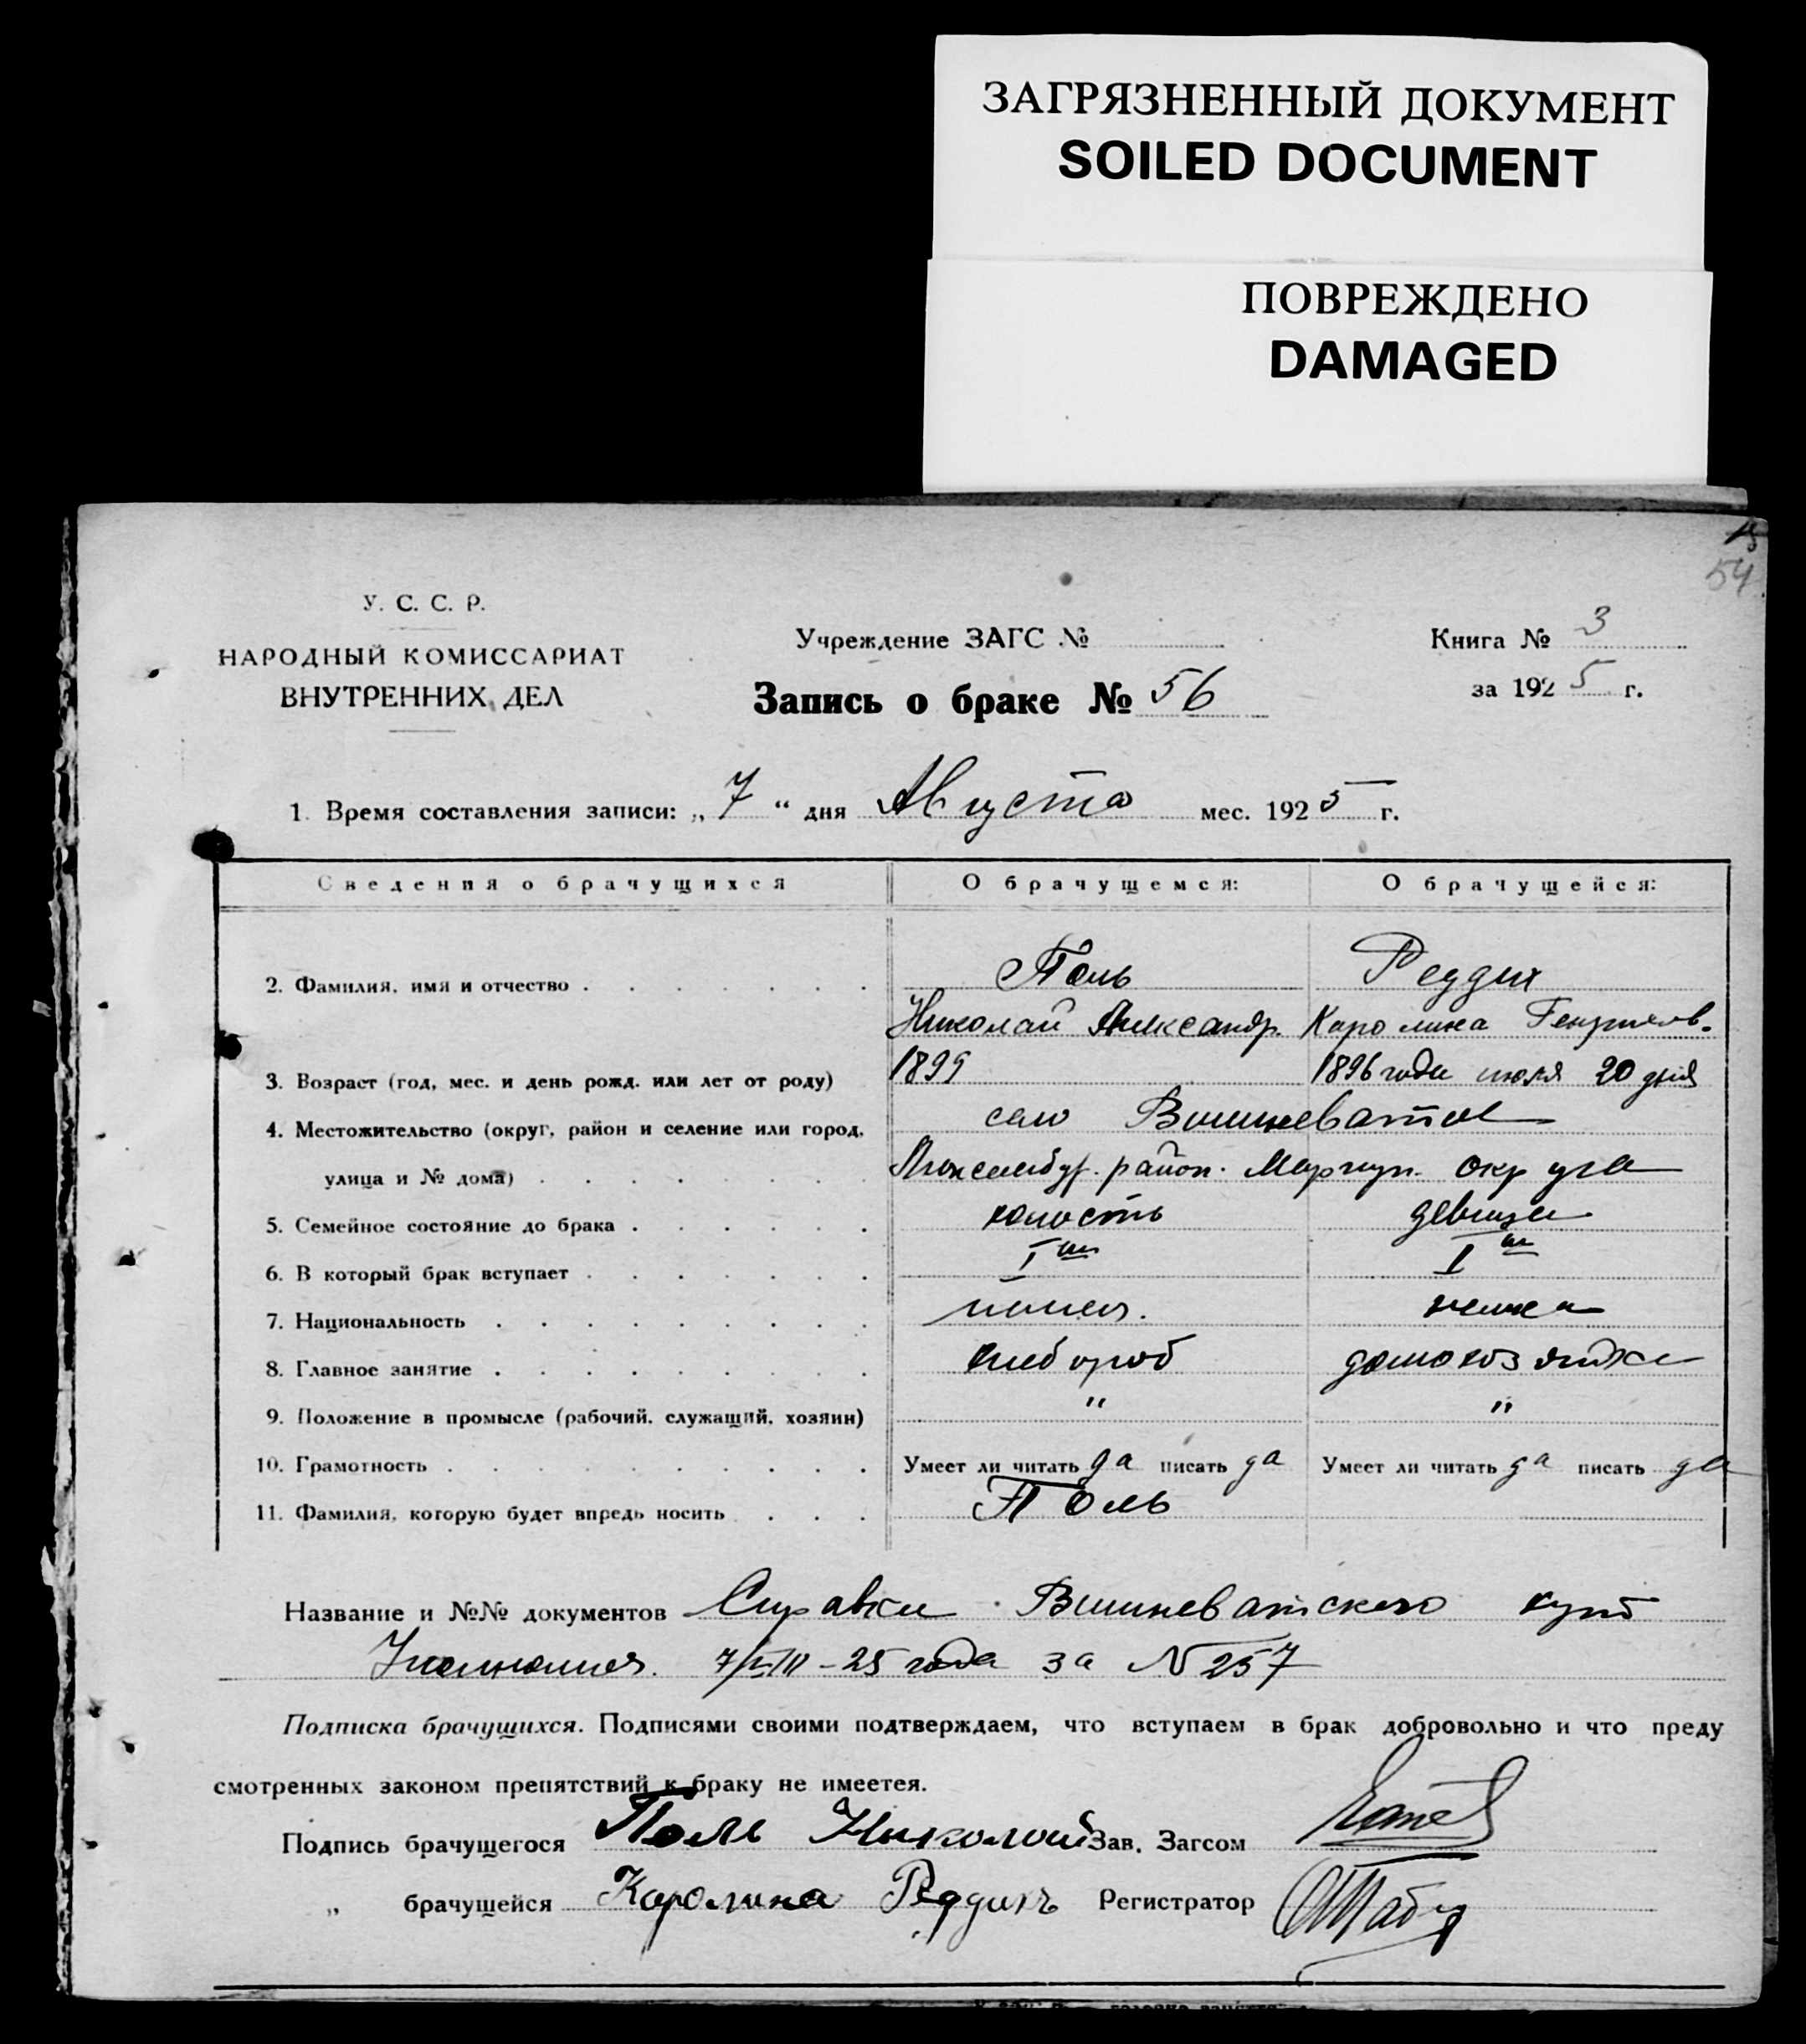 ЗАГРЯЗНЕННЫЙ ДОКУМЕНТ
SOILED DOCUMENT
ПОВРЕЖДЕНО
DAMAGED
54
У. С. С. Р.
НАРОДНЫЙ КОМИССАРИАТ
ВНУТРЕННИХ ДЕЛ
Учреждение ЗАГС №
Книга № 3
Запись о браке № 56
за 1925 г.
1. Время составления записи: „7“ дня Августа мес. 1925 г.
Сведения о брачущихся О брачущемся: О брачущейся:
2. Фамилия, имя и отчество Поль Реддих
Николай Александр. Каролина Генрихов.
3. Возраст (год, мес. и день рожд. или лет от роду) 1899 1896 года июля 20 дня
4. Местожительство (округ, район и селение или город, село Вишневатое
улица и № дома) Люксембург. район. Мариуп. округа
5. Семейное состояние до брака холость девица
6. В который брак вступает I I
7. Национальность немец. немка
8. Главное занятие хлебороб домохозяйка
9. Положение в промысле (рабочий, служащий, хозяин) " "
10. Грамотность Умеет ли читать да писать да Умеет ли читать да писать да
11. Фамилия, которую будет впредь носить Поль
Название и №№ документов Справки Вишневатского
7/VIII-25 года за N 257
Подписка брачущихся. Подписями своими подтверждаем, что вступаем в брак добровольно и что преду
смотренных законом препятствий к браку не имеетея.
Подпись брачущегося Поль Николай Зав. Загсом
„ брачущейся Каролина Реддихъ Регистратор